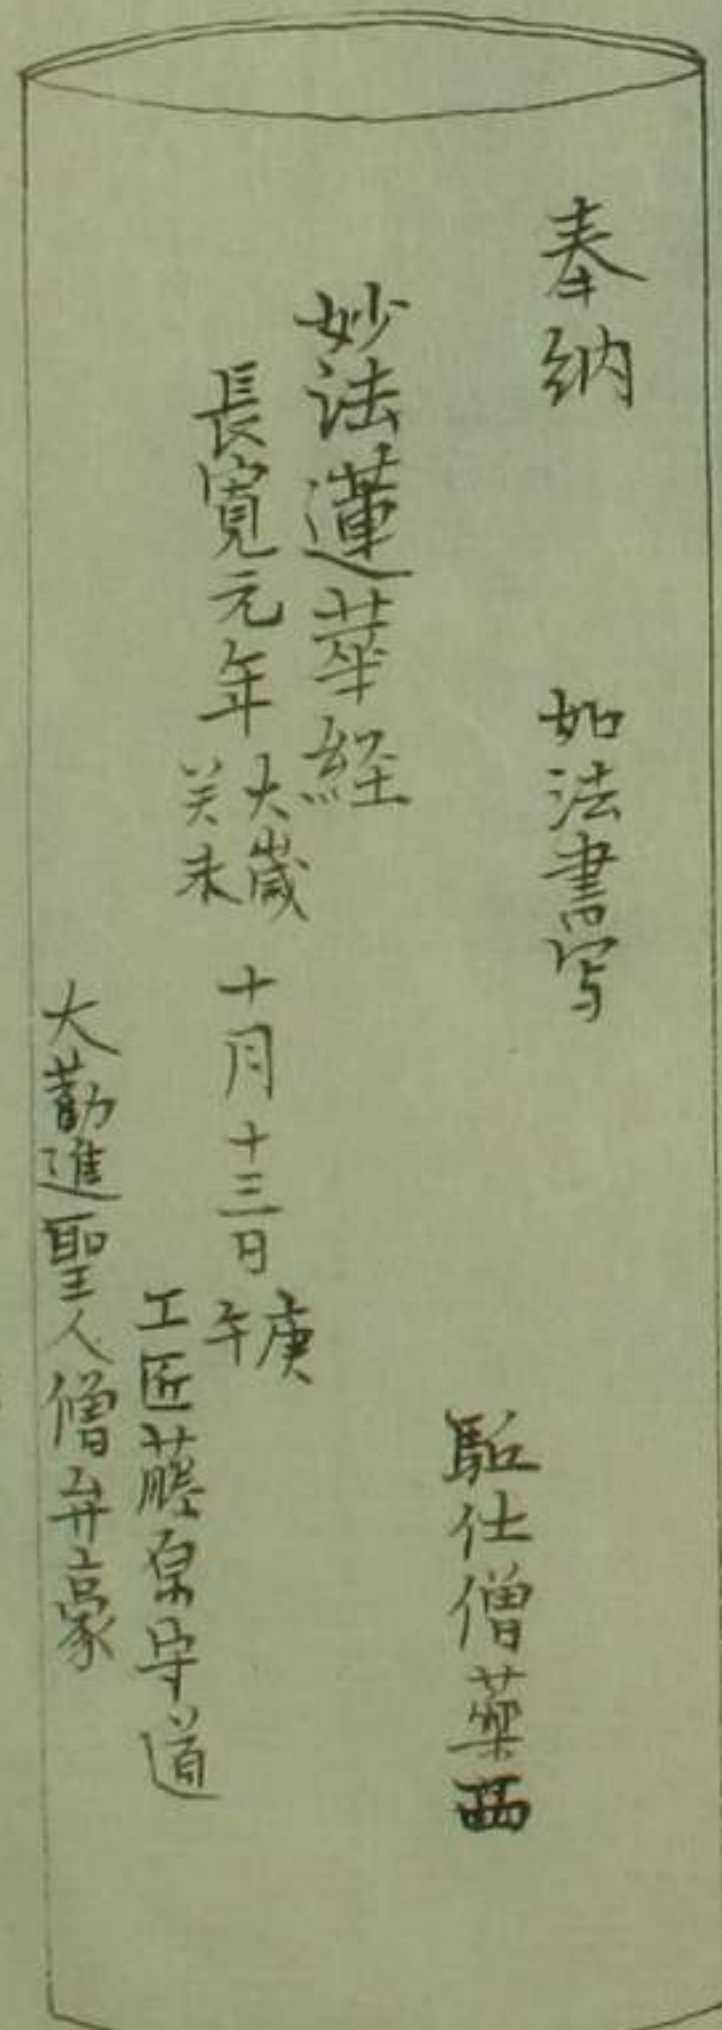 奉納 如法書写
駈仕僧薬西
妙法蓮華経
長寛元年大歳癸未十月十三日庚午
工匠藤原守道
大勧進聖人僧弁豪